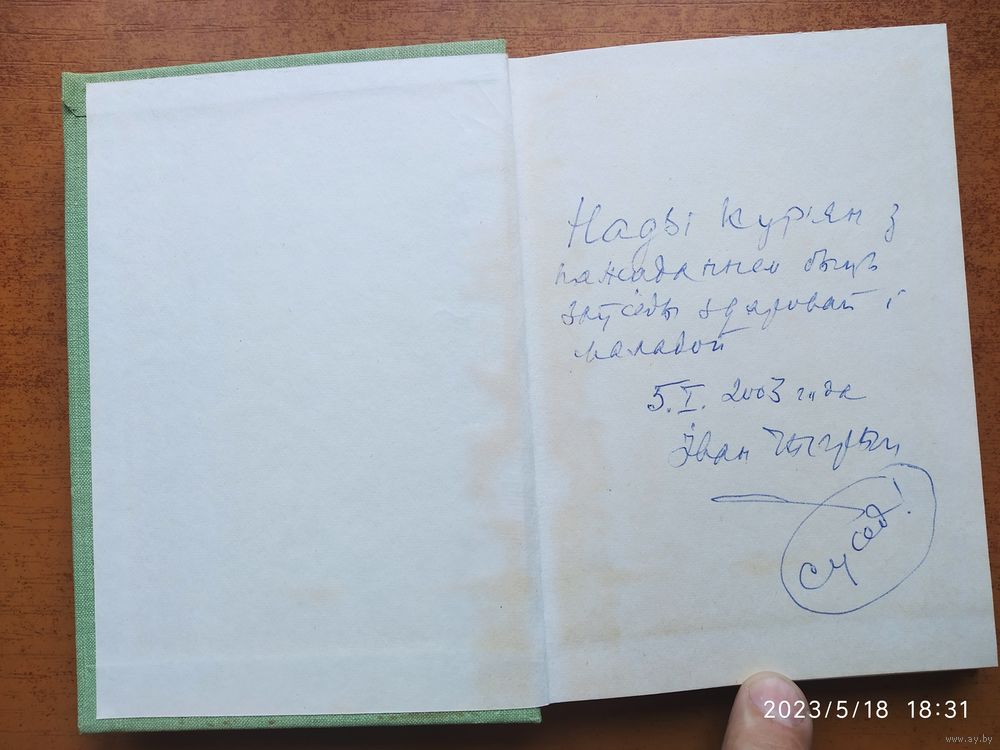 Надзі Курʼян з
пажаданнем быць
заўсёды здаровай і
маладой
5.I. 2003 года
Іван Чыгрын
сусед!
2023/5/18 18:31
www.ay.by